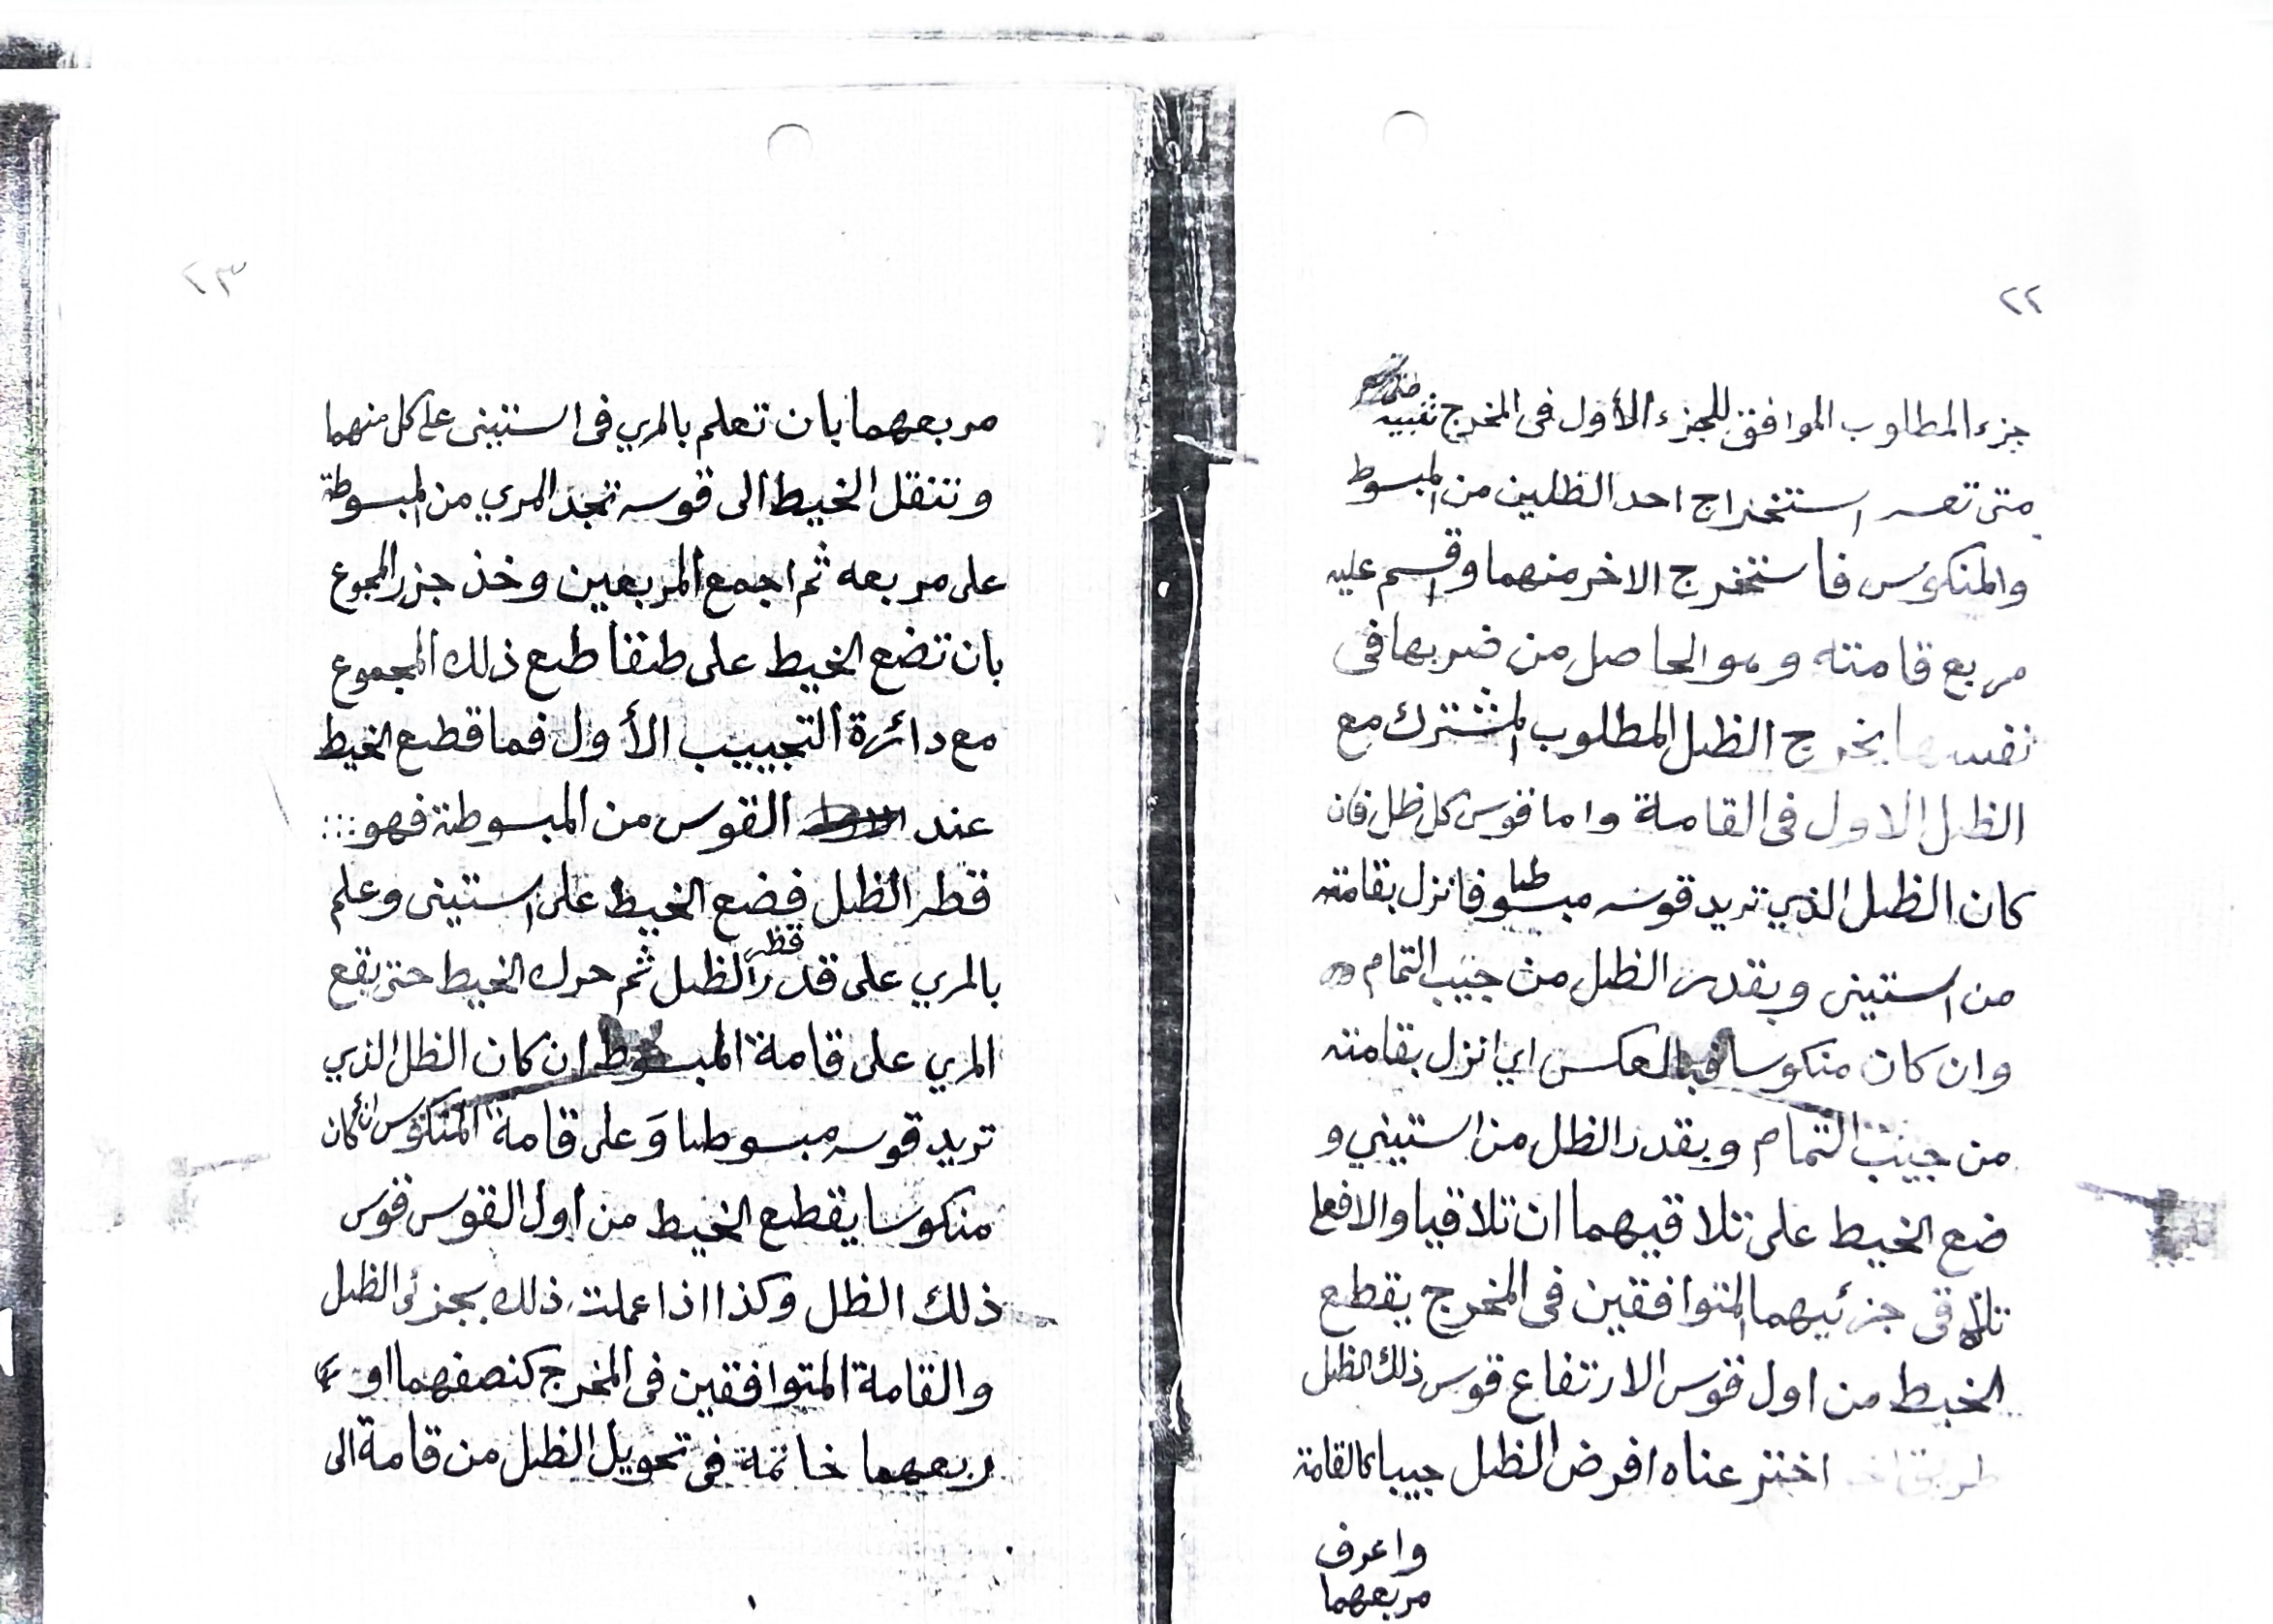 ٢٢
جزء المطلوب الموافق للجزء الأول فى المخرج تنبيه
متى تعسر استخراج احد الظلين من المبسوط
والمنكوس فاستخرج الاخر منهما واقسم عليه
مربع قامته وهو الحاصل من ضربها فى
نفسها يخرج الظل المطلوب المشترك مع
الظل الاول فى القامة واما قوس كل ظل فان
كان الظل الذي تريد قوسه مبسوطا فانزل بقامته
من استينى وبقدر الظل من جيب التمام
وان كان منكوسا فبالعكس اي انزل بقامته
من جيب التمام وبقدر الظل من استيني و
ضع الخيط على تلاقيهما ان تلاقيا والا فعلى
تلاقى جزئيهما المتوافقين فى المخرج يقطع
الخيط من اول قوس الارتفاع قوس ذلك الظل
طريق اخر اخترعناه افرض الظل جيبا كالقامة
واعرف
مربعهما
٢٣
مربعهما بان تعلم بالمري فى استينى على كل منهما
وتنقل الخيط الى قوسه تجد المري من المبسوطة
على مربعه ثم اجمع المربعين وخذ جزر المجموع
بان تضع الخيط على طتقاطع ذلك المجموع
مع دائرة التجييب الأول فما قطع الخيط
عند القوس من المبسوطة فهو
قطر الظل فضع الخيط على استينى وعلم
بالمري على قدر قطر الظل ثم حرك الخيط حتى يقع
المري على قامة المبسوط ان كان الظل الذي
تريد قوسه مبسوطا وَعلى قامة المنكوس ان كان
منكوسا يقطع الخيط من اول القوس قوس
ذلك الظل وكذا اذا عملت ذلك بجزئى الظل
والقامة المتوافقين فى المخرج كنصفهما او
ربعهما خاتمة فى تحويل الظل من قامة الى